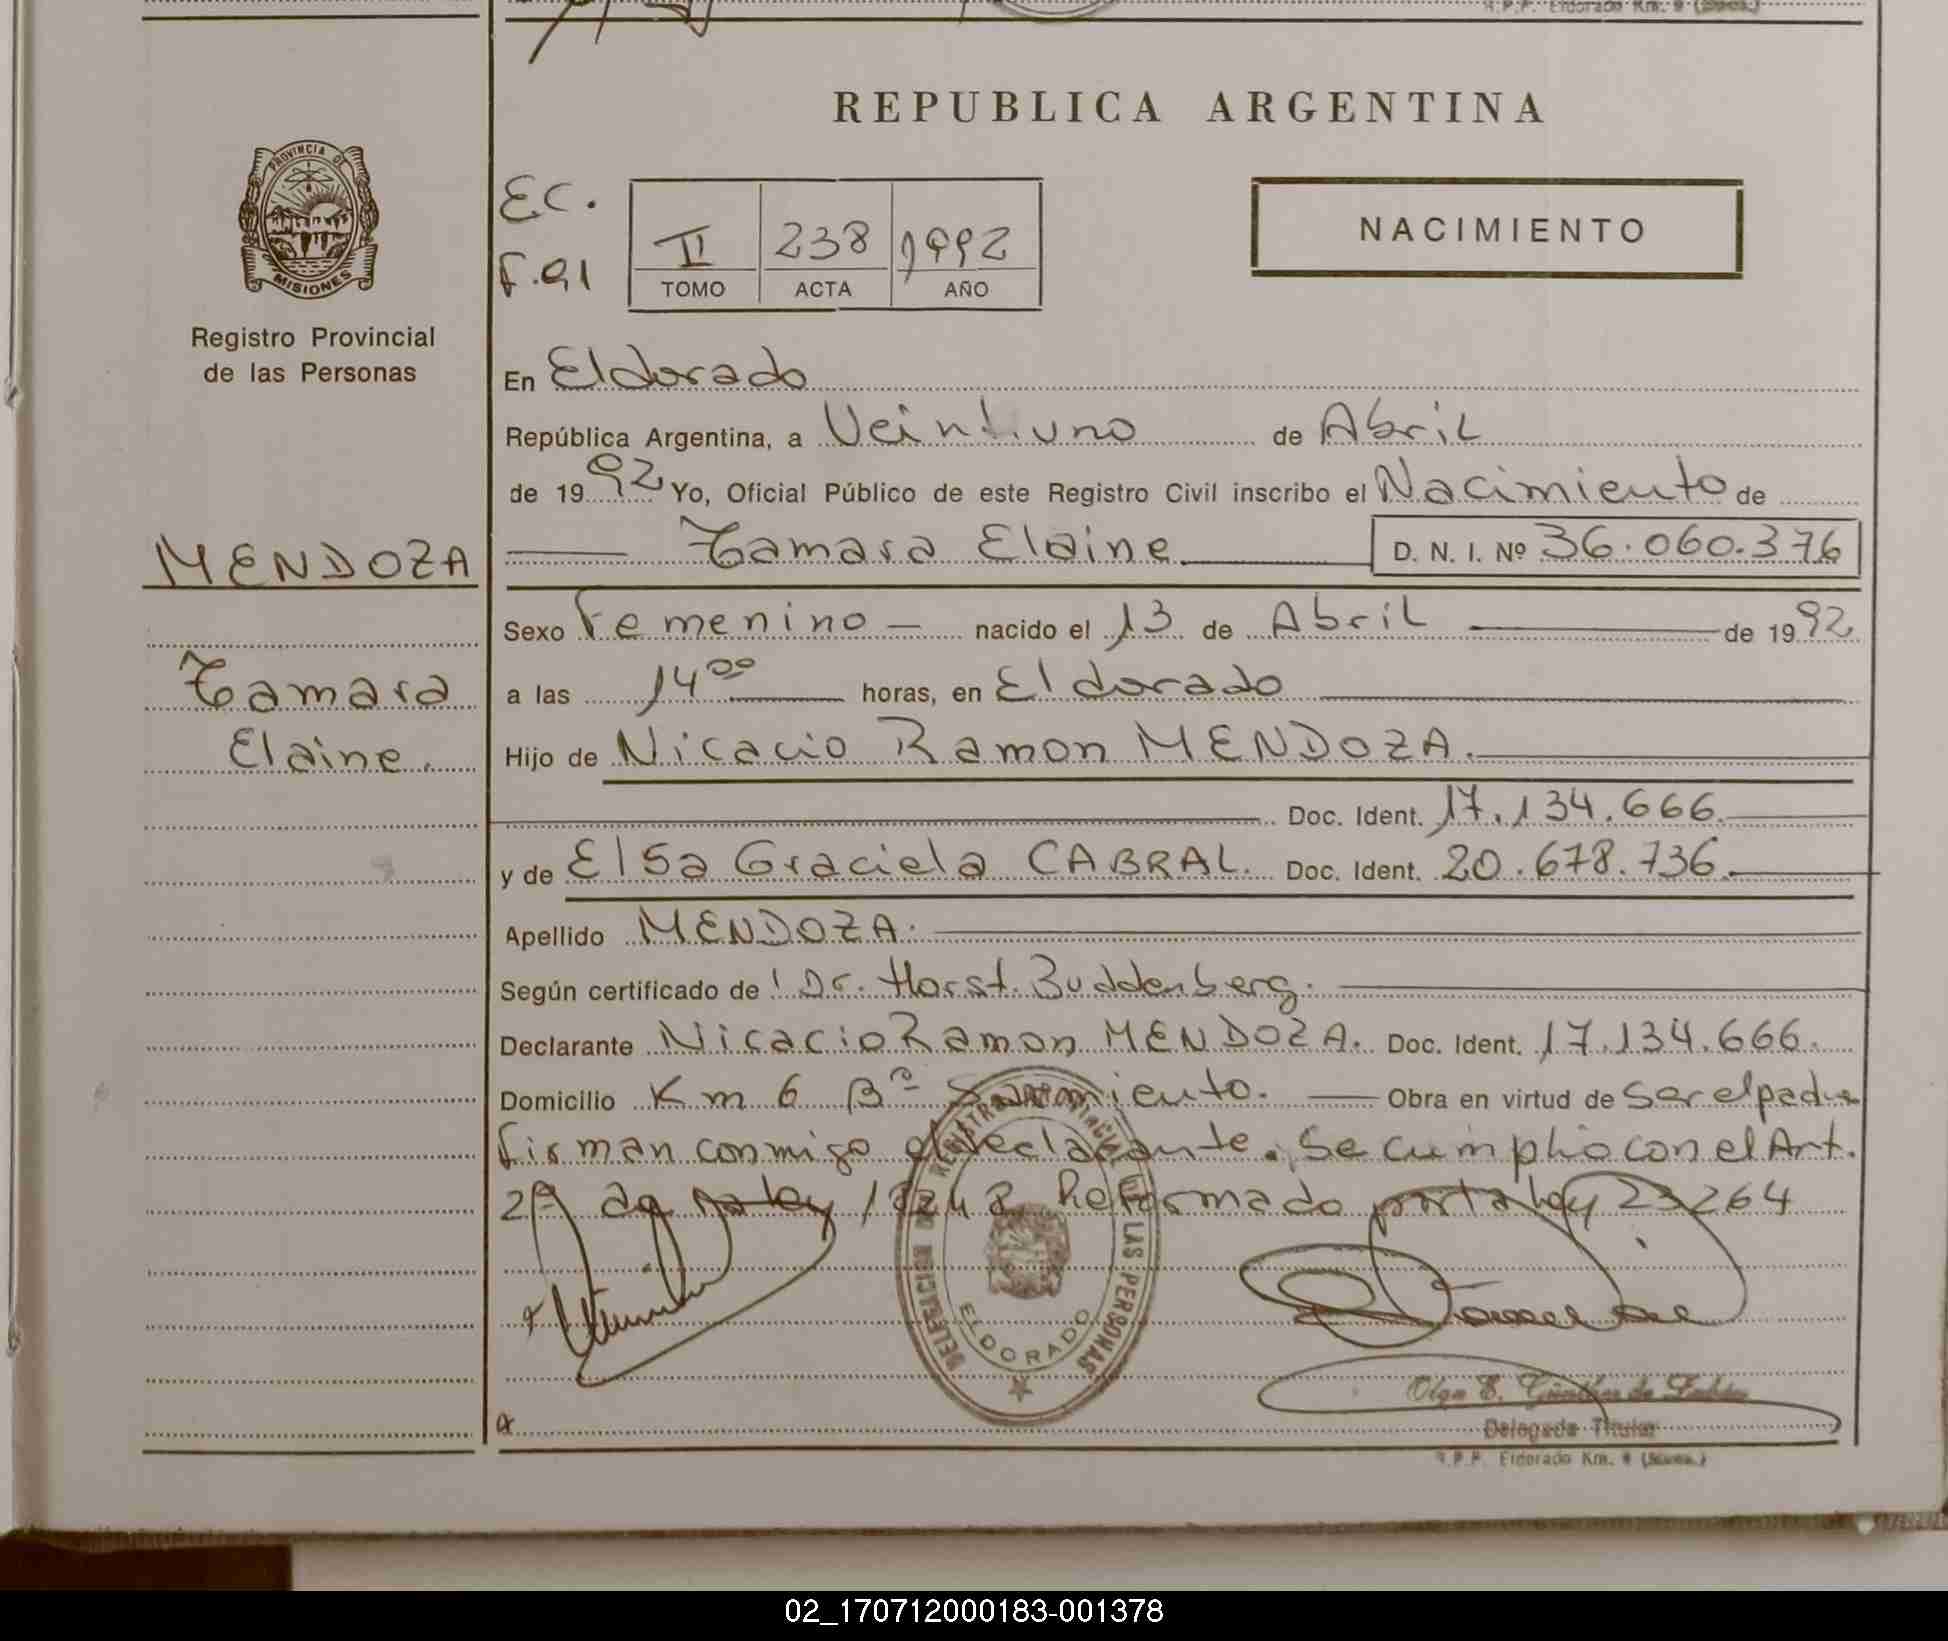 R.P.P. Eldorado Km. 9
REPUBLICA ARGENTINA
PROVINCIA DE
MISIONES
Registro Provincial
de las Personas
EC.
F.91
II 238 1992
TOMO ACTA AÑO
NACIMIENTO
En Eldorado
República Argentina, a Veintiuno de Abril
de 1992 Yo, Oficial Público de este Registro Civil inscribo el Nacimiento de
MENDOZA
Tamara Elaine D. N. I. Nº 36.060.376
Sexo Femenino nacido el 13 de Abril de 1992
Tamara
Elaine.
a las 14 00 horas, en Eldorado
Hijo de Nicacio Ramon MENDOZA.
Doc. Ident. 17.134.666.
y de Elsa Graciela CABRAL. Doc. Ident. 20.678.736.
Apellido MENDOZA.
Según certificado de Dr. Horst. Buddenberg.
Declarante Nicacio Ramon MENDOZA. Doc. Ident. 17.134.666.
Domicilio Km 6 Bº Sarmiento. Obra en virtud de ser el padre
firman conmigo el declarante. Se cumplio con el Art.
2º de la ley 18248 Reformado por la ley 23264
REGISTRO PROVINCIAL DE LAS PERSONAS
ELDORADO
Olga E. Günther de
Delegada Titular
R.P.P. Eldorado Km. 9
02_170712000183-001378